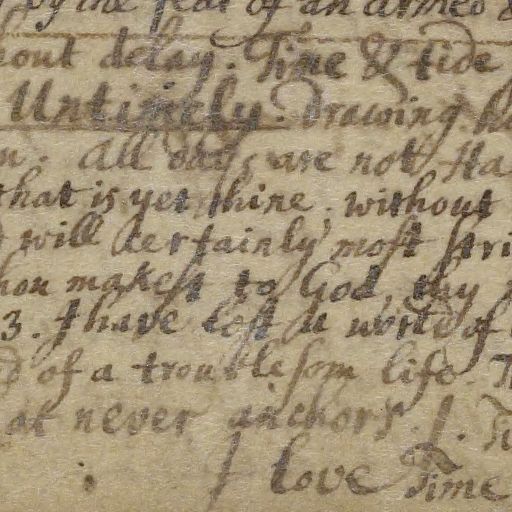 by the fear of an armed
out delay. Time & tide
Untimely. Drawing
All days are not
that is yet thine. without
will certainly most stri
hou makest to God, thy
3. I have lost a world of
of a troublesom life. T
at never anchors. /.
I love Time